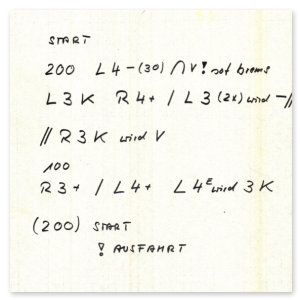 START
200 L4-(30) ⋂ V! not brems
L3K R4+ / L3 (2x) wird -//
// R3K wird V
100
R3+ / L4+ L4ᴱ wird 3K
(200) START
! AUSFAHRT